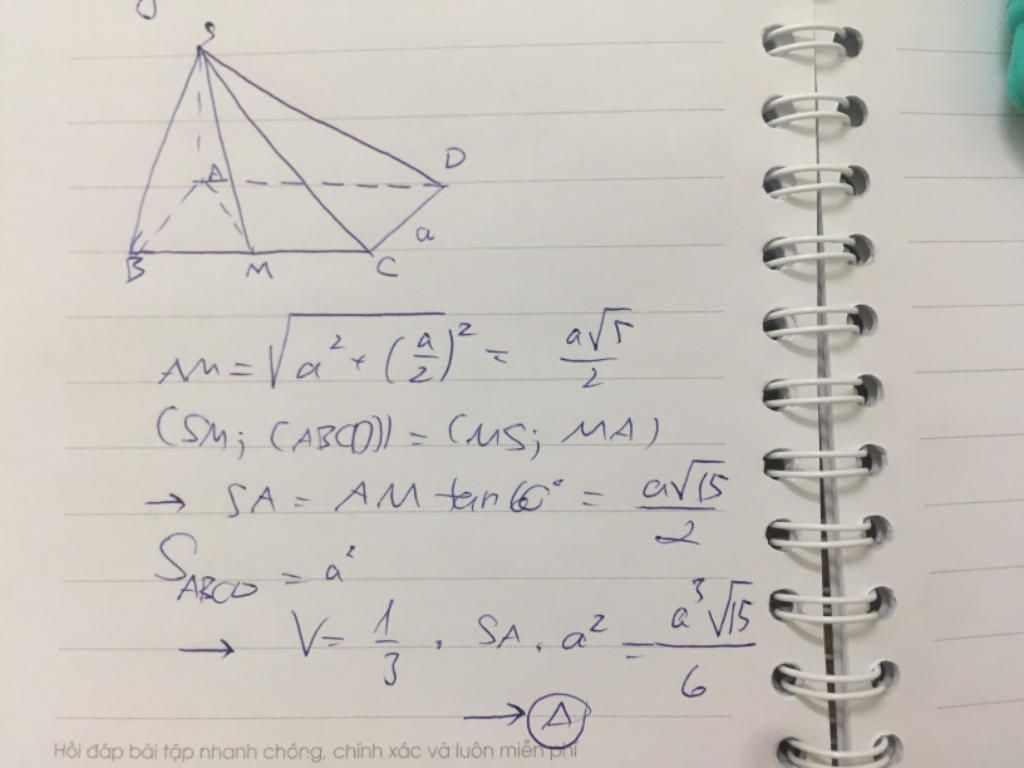 S
A
D
a
B M C
AM = √(a² + (a/2)²) = a√5/2
(SM; (ABCD)) = (MS; MA)
→ SA = AM tan60° = a√15/2
S_ABCD = a²
→ V = 1/3 . SA . a² = a³√15/6
→ A
Hỏi đáp bài tập nhanh chóng, chính xác và luôn miễn phí